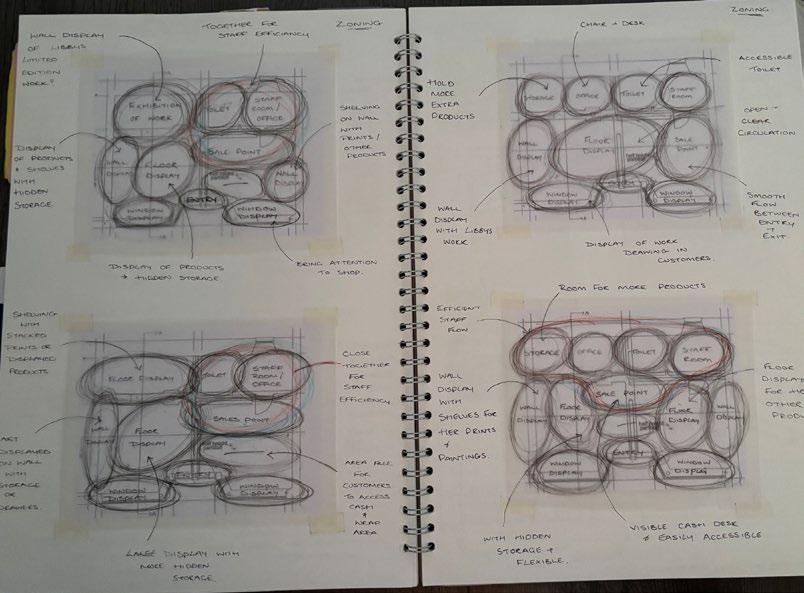 ZONING
TOGETHER FOR
STAFF EFFICIANCY
WALL DISPLAY
OF LIBBYS
LIMITED
EDITION
WORK?
EXHIBITION
OF WORK
TOILET
STAFF
ROOM/
OFFICE
SALE POINT
SHELVING
ON WALL
WITH
PRINTS/
OTHER
PRODUCTS
DISPLAY
OF PRODUCTS
+ SHELVES
WITH
HIDDEN
STORAGE.
WALL
DISPLAY
FLOOR
DISPLAY
WALL
DISPLAY
ENTRY
WINDOW
DISPLAY
WINDOW
DISPLAY
DISPLAY OF PRODUCTS
+ HIDDEN STORAGE
BRING ATTENTION
TO SHOP.
SHELVING
WITH
STACKED
PRINTS OR
DISPLAYED
PRODUCTS
FLOOR DISPLAY
TOILET
STAFF
ROOM/
OFFICE
SALES POINT
CLOSE
TOGETHER
FOR
STAFF
EFFICIENCY
WALL
DISPLAY
FLOOR
DISPLAY
ENTRY
WINDOW
DISPLAY
WINDOW
DISPLAY
ART
DISPLAYED
ON WALL
WITH
STORAGE
OR
AREA FREE
FOR
CUSTOMERS
TO ACCESS
CASH
+
WRAP
AREA
LARGE DISPLAY WITH
MORE HIDDEN
STORAGE.
ZONING
CHAIR + DESK
ACCESSIBLE
TOILET
HOLD
MORE
EXTRA
PRODUCTS
STORAGE
OFFICE
TOILET
STAFF
ROOM
OPEN +
CLEAR
CIRCULATION
WALL
DISPLAY
FLOOR
DISPLAY
SALE
POINT
ENTRY
WINDOW
DISPLAY
WINDOW
DISPLAY
WALL
DISPLAY
WITH LIBBYS
WORK
SMOOTH
FLOW
BETWEEN
ENTRY
+
EXIT
DISPLAY OF WORK
DRAWING IN
CUSTOMERS.
ROOM FOR MORE PRODUCTS
EFFICIENT
STAFF
FLOW
STORAGE
OFFICE
TOILET
STAFF
ROOM
SALE POINT
WALL
DISPLAY
FLOOR
DISPLAY
FLOOR
DISPLAY
WALL
DISPLAY
ENTRY
WINDOW
DISPLAY
WINDOW
DISPLAY
WALL
DISPLAY
WITH
SHELVES FOR
HER PRINTS
+
PAINTINGS.
FLOOR
DISPLAY
FOR HER
OTHER
WITH HIDDEN
STORAGE +
FLEXIBLE.
VISIBLE CASH DESK
EASILY ACCESSIBLE